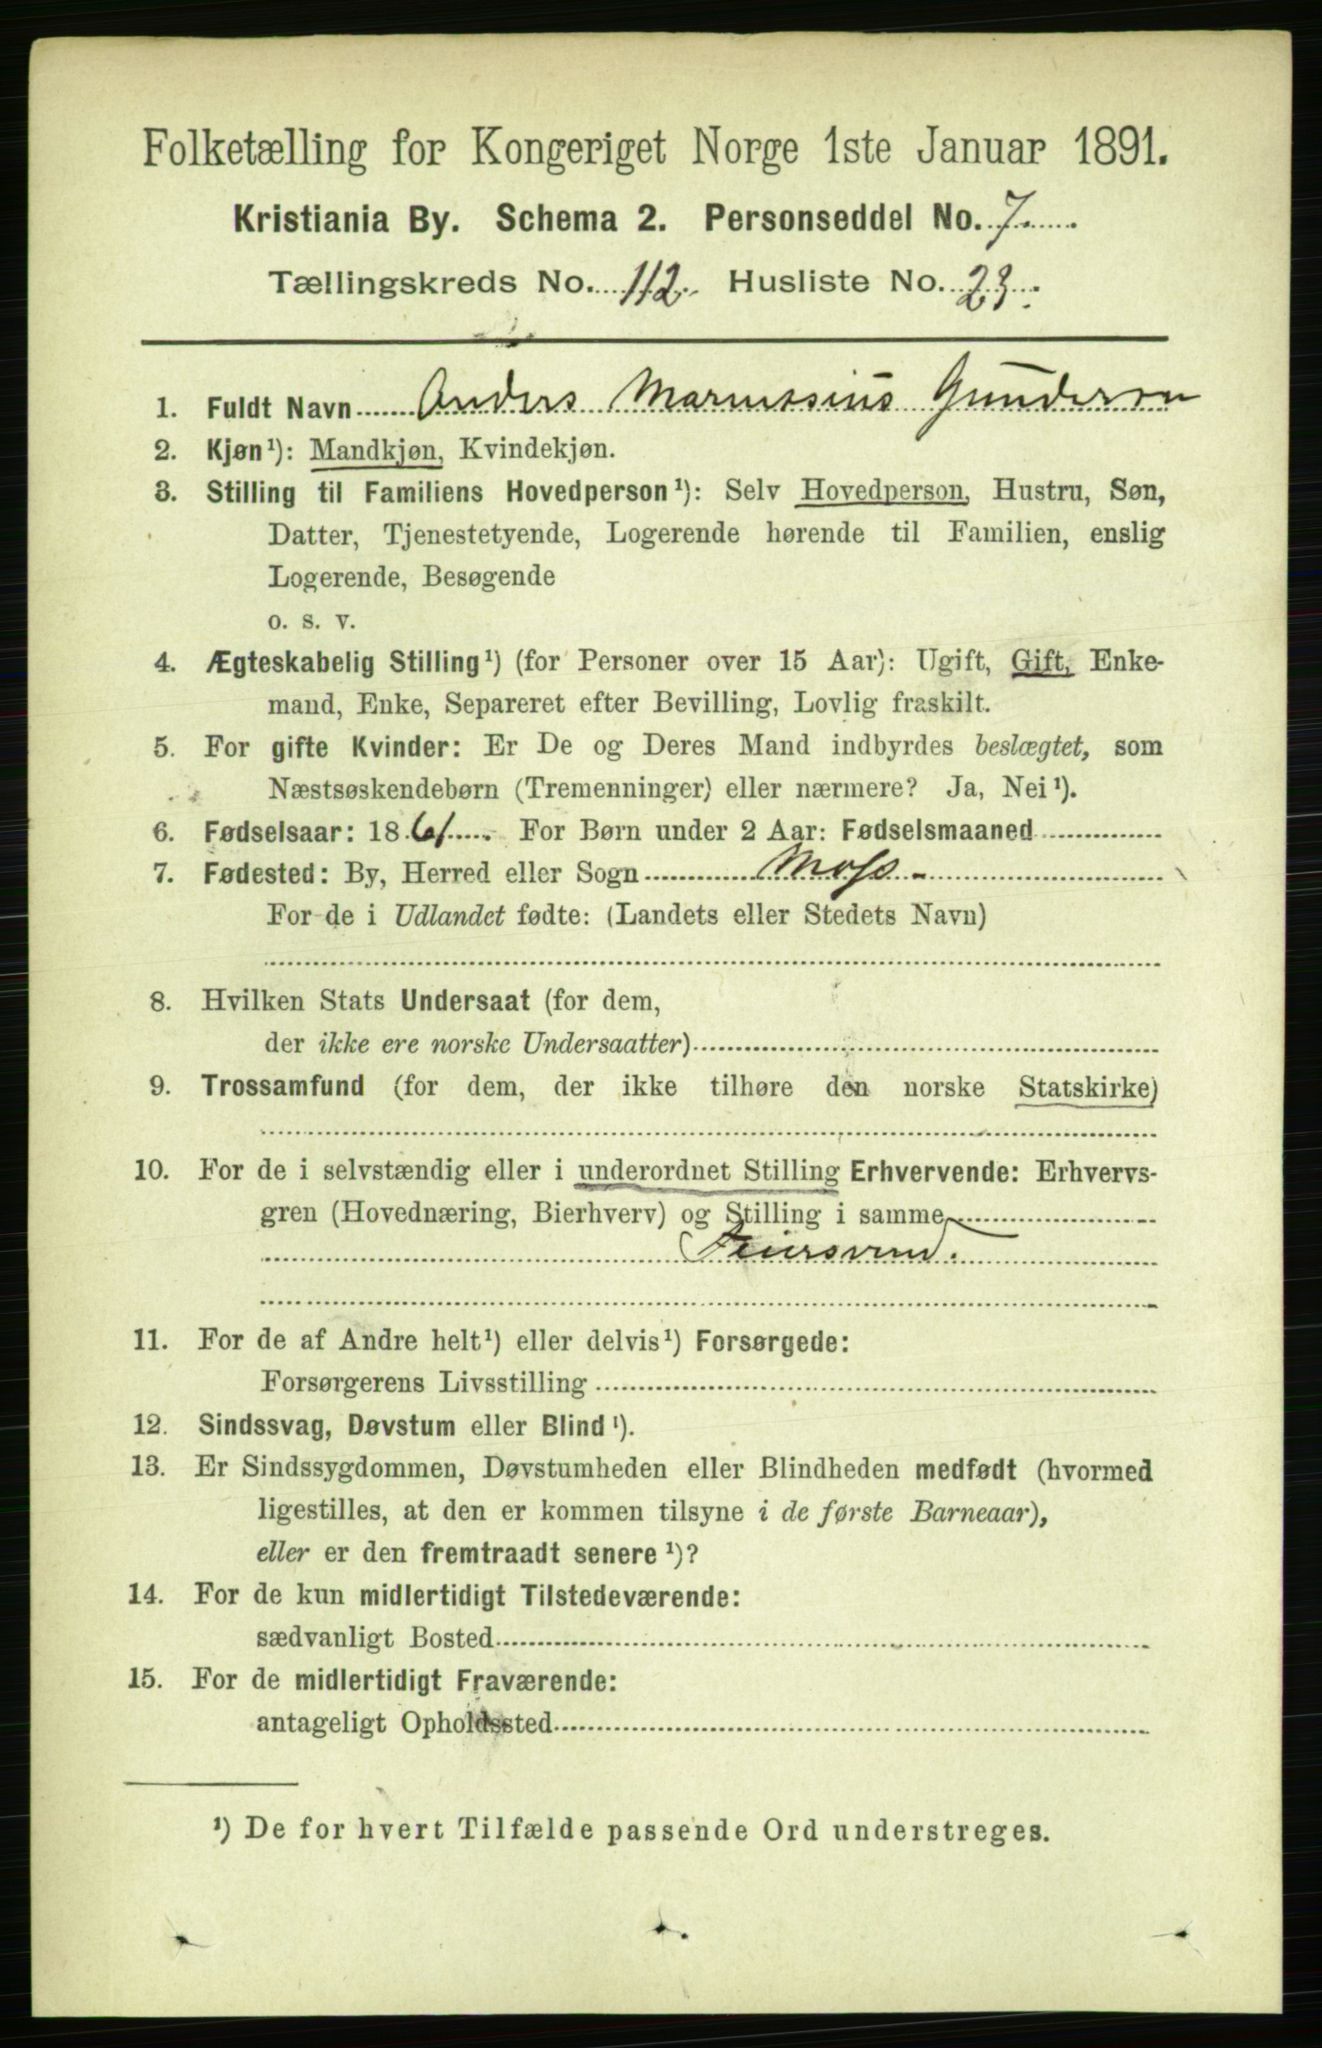 Folketælling for Kongeriget Norge 1ste Januar 1891.
Kristiania By. Schema 2. Personseddel No. 7
Tællingskreds No. 112. Husliste No. 23.
1. Fuldt Navn Anders Gundersen
2. Kjøn¹): Mandkjøn, Kvindekjøn.
3. Stilling til Familiens Hovedperson¹): Selv Hovedperson, Hustru, Søn,
Datter, Tjenestetyende, Logerende hørende til Familien, enslig
Logerende, Besøgende
o. s. v.
4. Ægteskabelig Stilling¹) (for Personer over 15 Aar): Ugift, Gift, Enke-
mand, Enke, Separeret efter Bevilling, Lovlig fraskilt.
5. For gifte Kvinder: Er De og Deres Mand indbyrdes beslægtet, som
Næstsøskendebørn (Tremenninger) eller nærmere? Ja, Nei¹).
6. Fødselsaar: 1861. For Børn under 2 Aar: Fødselsmaaned
7. Fødested: By, Herred eller Sogn Moss.
For de i Udlandet fødte: (Landets eller Stedets Navn)
8. Hvilken Stats Undersaat (for dem,
der ikke ere norske Undersaatter)
9. Trossamfund (for dem, der ikke tilhøre den norske Statskirke)
10. For de i selvstændig eller i underordnet Stilling Erhvervende: Erhvervs-
gren (Hovednæring, Bierhverv) og Stilling i samme
Feiersvend.
11. For de af Andre helt¹) eller delvis¹) Forsørgede:
Forsørgerens Livsstilling
12. Sindssvag, Døvstum eller Blind¹).
13. Er Sindssygdommen, Døvstumheden eller Blindheden medfødt (hvormed
ligestilles, at den er kommen tilsyne i de første Barneaar),
eller er den fremtraadt senere¹)?
14. For de kun midlertidigt Tilstedeværende:
sædvanligt Bosted
15. For de midlertidigt Fraværende:
antageligt Opholdssted
¹) De for hvert Tilfælde passende Ord understreges.